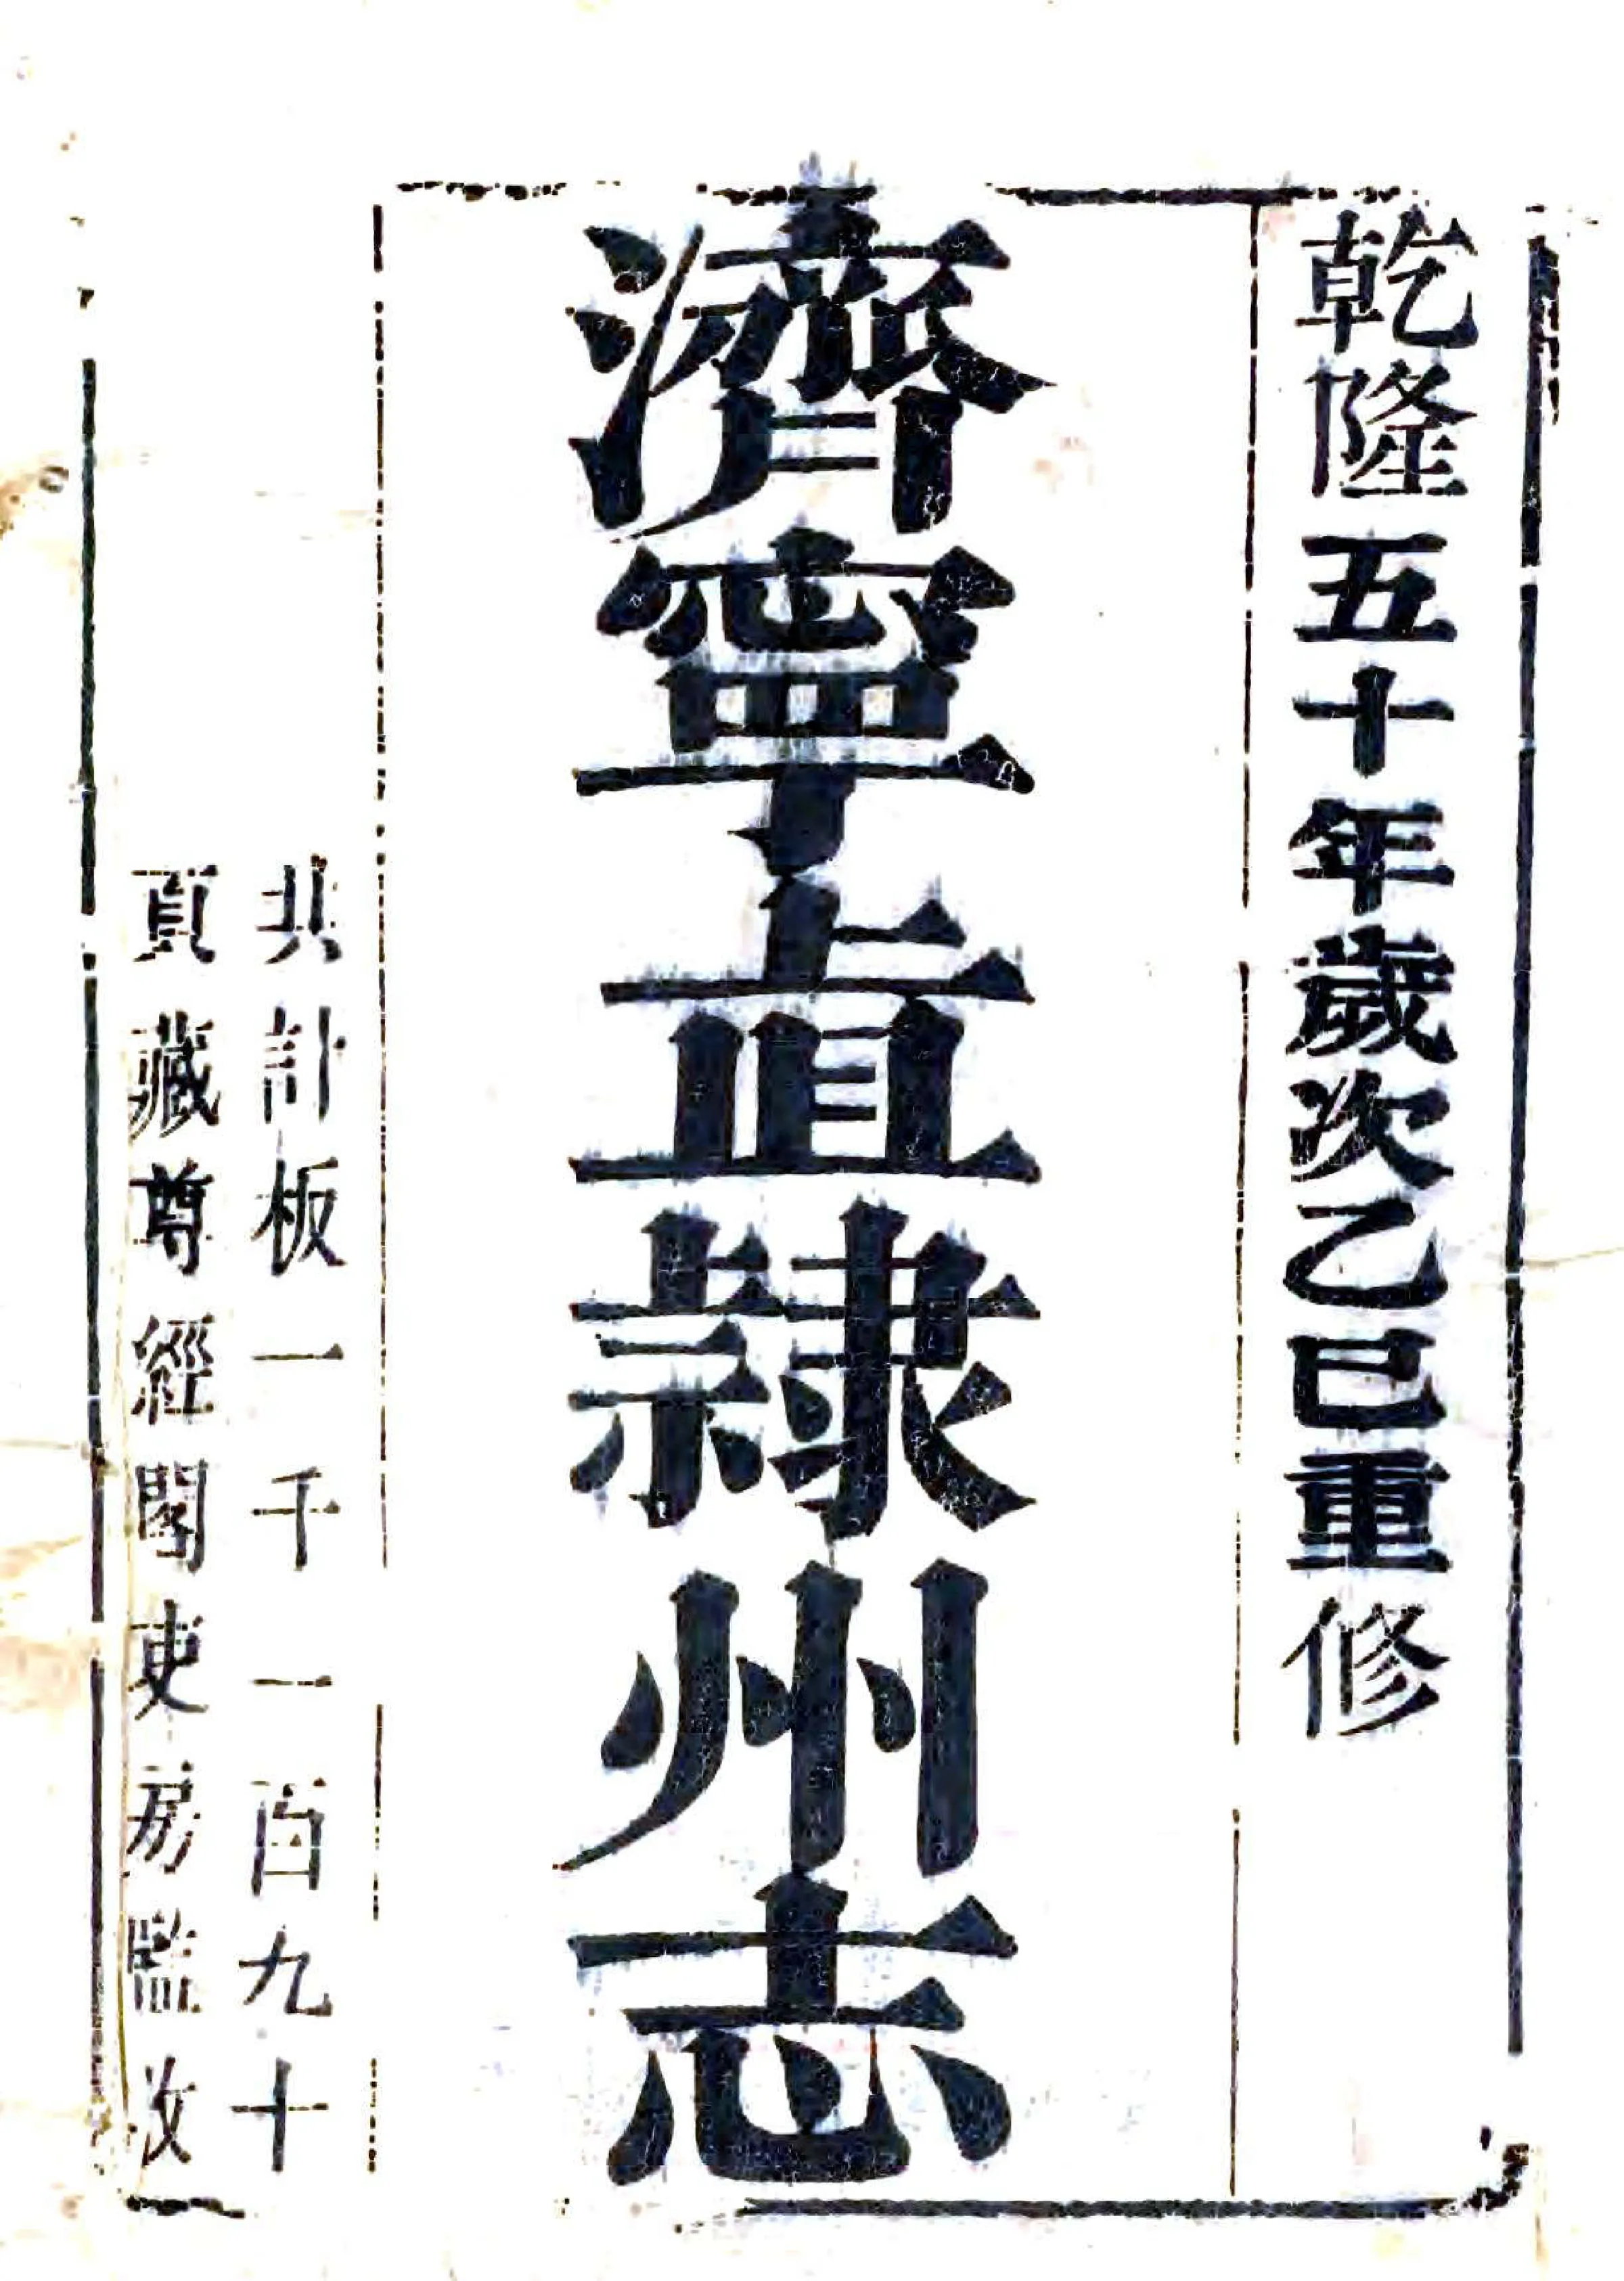 乾隆五十年歲次乙巳重修
濟寧直隸州志
共計板一千一百九十
頁藏尊經閣吏房監收